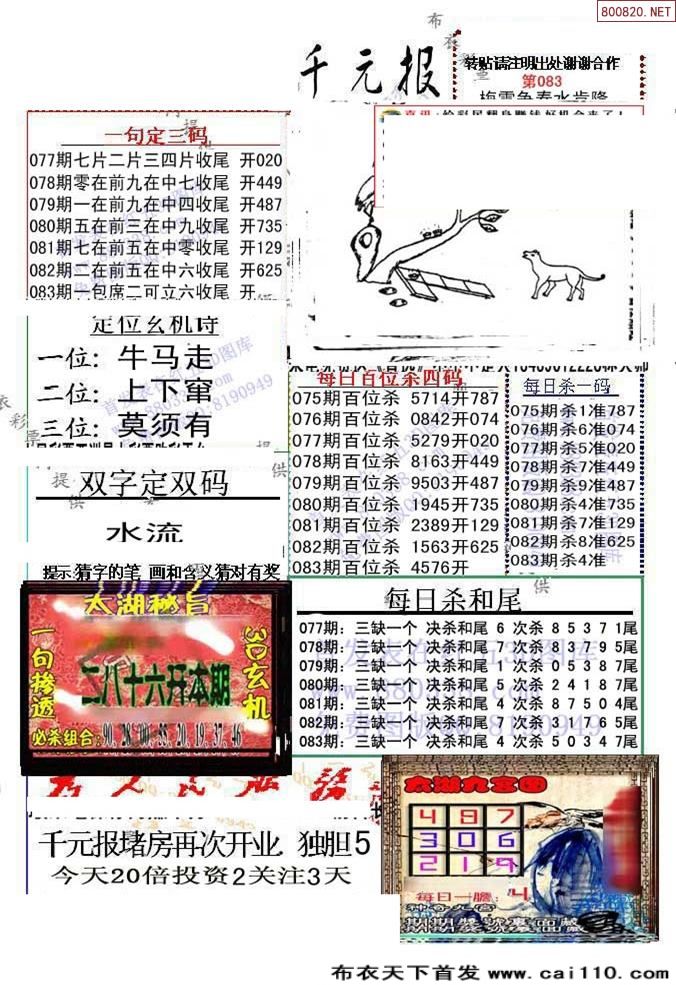 800820.NET
千元报
转贴请注明出处谢谢合作
第083
一句定三码
077期七片二片三四片收尾 开020
078期零在前九在中七收尾 开449
079期一在前九在中四收尾 开487
080期五在前三在中九收尾 开735
081期七在前五在中零收尾 开129
082期二在前五在中六收尾 开625
083期一包席二可立六收尾 开
定位玄机诗
一位: 牛马走
二位: 上下窜
三位: 莫须有
每日百位杀四码
075期百位杀 5714开787
076期百位杀 0842开074
077期百位杀 5279开020
078期百位杀 8163开449
079期百位杀 9503开487
080期百位杀 1945开735
081期百位杀 2389开129
082期百位杀 1563开625
083期百位杀 4576开
每日杀一码
075期杀1准787
076期杀6准074
077期杀5准020
078期杀7准449
079期杀9准487
080期杀4准735
081期杀7准129
082期杀8准625
083期杀4准
双字定双码
水流
提示:猜字的笔 画和含义猜对有奖
太湖秘旨
一句掺透
3D玄机
二八十六开本期
必杀组合:90, 28, 00, 55, 20, 19, 37, 46
每日杀和尾
077期: 三缺一个 决杀和尾 6 次杀 8 5 3 7 1尾
078期: 三缺一个 决杀和尾 7 次杀 8 3 7 9 5尾
079期: 三缺一个 决杀和尾 1 次杀 0 5 3 8 7尾
080期: 三缺一个 决杀和尾 5 次杀 2 4 1 8 7尾
081期: 三缺一个 决杀和尾 4 次杀 8 7 5 0 4尾
082期: 三缺一个 决杀和尾 4 次杀 3 1 7 6 5尾
083期: 三缺一个 决杀和尾 4 次杀 5 0 3 4 7尾
千元报堵房再次开业 独胆5
今天20倍投资2关注3天
太湖九宫图
4 8 7
3 0 6
2 1 9
每日一胆: 4
布衣天下首发 www.cai110.com